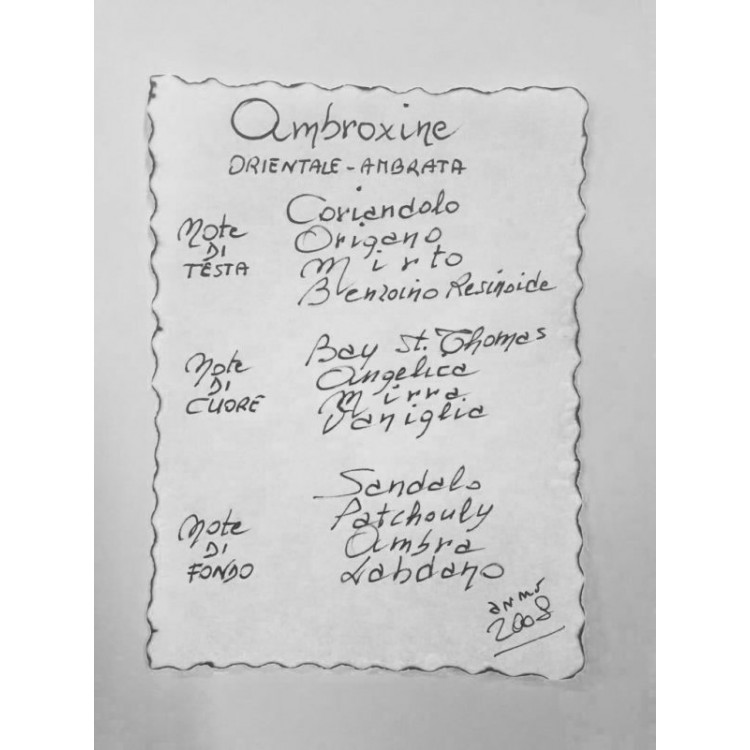 Ambroxine
ORIENTALE - AMBRATA
Note
DI
TESTA
Coriandolo
Origano
Mirto
Benzoino Resinoide
Note
DI
CUORE
Bay St. Thomas
Angelica
Mirra
Vaniglia
Note
DI
FONDO
Sandalo
Patchouly
Ambra
Labdano
2008